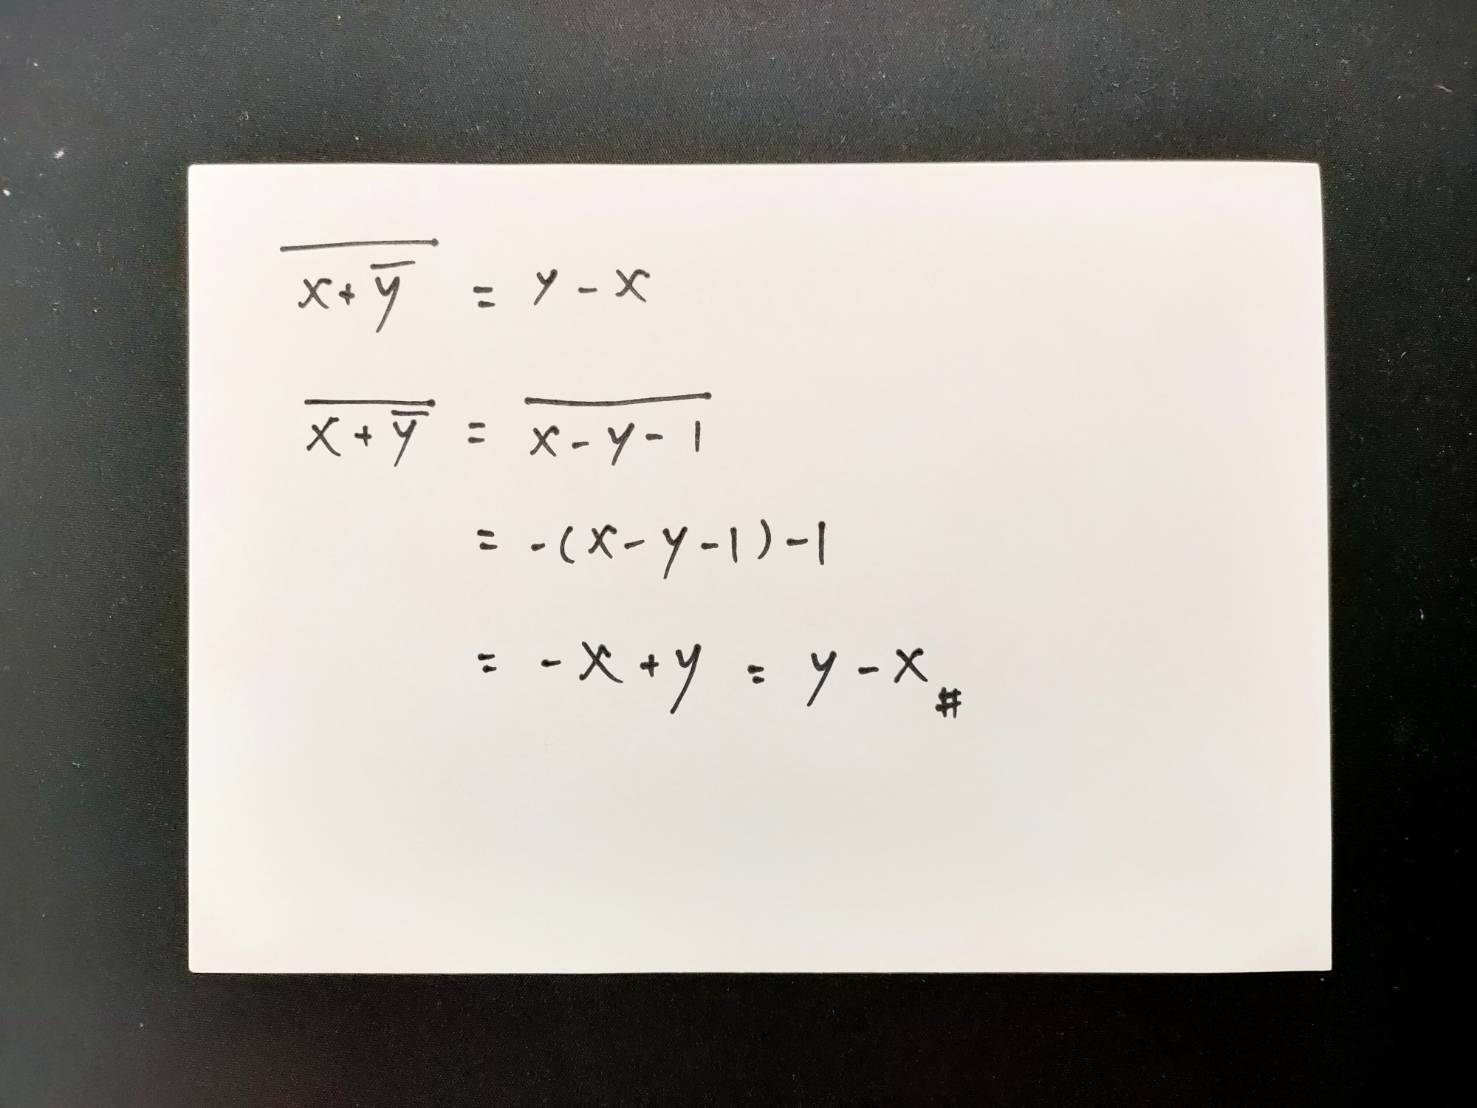 $\overline{x+\overline{y}} = y - x$
$\overline{x+\overline{y}} = \overline{x-y-1}$
$= -(x-y-1)-1$
$= -x+y = y-x$ #